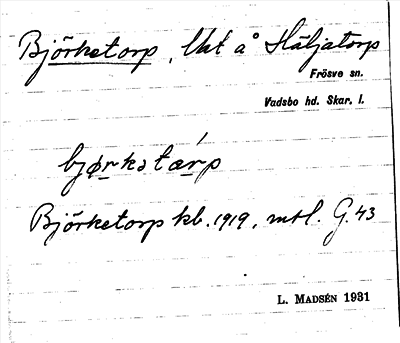 Björketorp, Utt å Häljatorp
Frösve sn.
Vadsbo hd. Skar. l.
bjørkətǽrp
Björketorp kb. 1919, mtl. G. 43
L. MADSÉN 1931